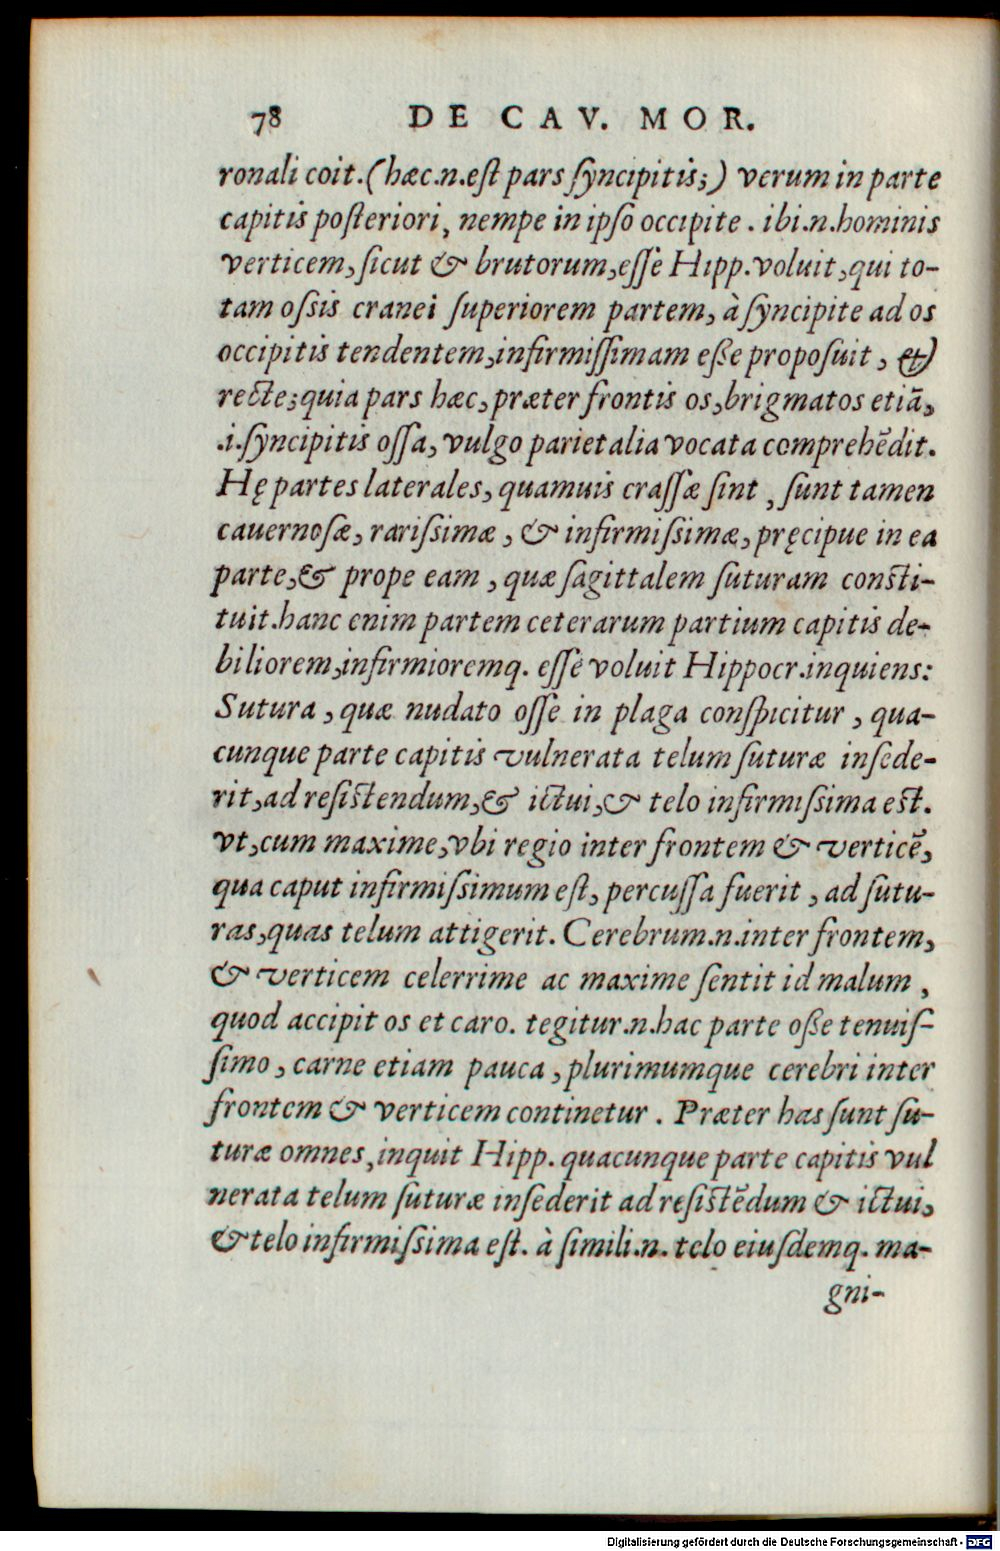 78 DE CAV. MOR.
ronali coit. (hæc.n.est pars syncipitis;) verum in parte
capitis posteriori, nempe in ipso occipite. ibi.n.hominis
verticem, sicut & brutorum, esse Hipp. voluit, qui to-
tam ossis cranei superiorem partem, à syncipite ad os
occipitis tendentem, infirmissimam eße proposuit, &
recte; quia pars hæc, præter frontis os, brigmatos etiã,
.i. syncipitis ossa, vulgo parietalia vocata comprehẽdit.
Hę partes laterales, quamuis crassæ sint, sunt tamen
cauernosæ, rarissimæ, & infirmissimæ, pręcipue in ea
parte, & prope eam, quæ sagittalem suturam consti-
tuit. hanc enim partem ceterarum partium capitis de-
biliorem, infirmioremq. esse voluit Hippocr. inquiens:
Sutura, quæ nudato osse in plaga conspicitur, qua-
cunque parte capitis vulnerata telum suturæ insede-
rit, ad resistendum, & ictui, & telo infirmissima est.
vt, cum maxime, vbi regio inter frontem & verticẽ,
qua caput infirmissimum est, percussa fuerit, ad sutu-
ras, quas telum attigerit. Cerebrum.n.inter frontem,
& verticem celerrime ac maxime sentit id malum,
quod accipit os et caro. tegitur.n.hac parte oße tenuis-
simo, carne etiam pauca, plurimumque cerebri inter
frontem & verticem continetur. Præter has sunt su-
turæ omnes, inquit Hipp. quacunque parte capitis vul
nerata telum suturæ insederit ad resistẽdum & ictui,
& telo infirmissima est. à simili.n. telo eiusdemq. ma-
gni-
Digitalisierung gefördert durch die Deutsche Forschungsgemeinschaft - DFG